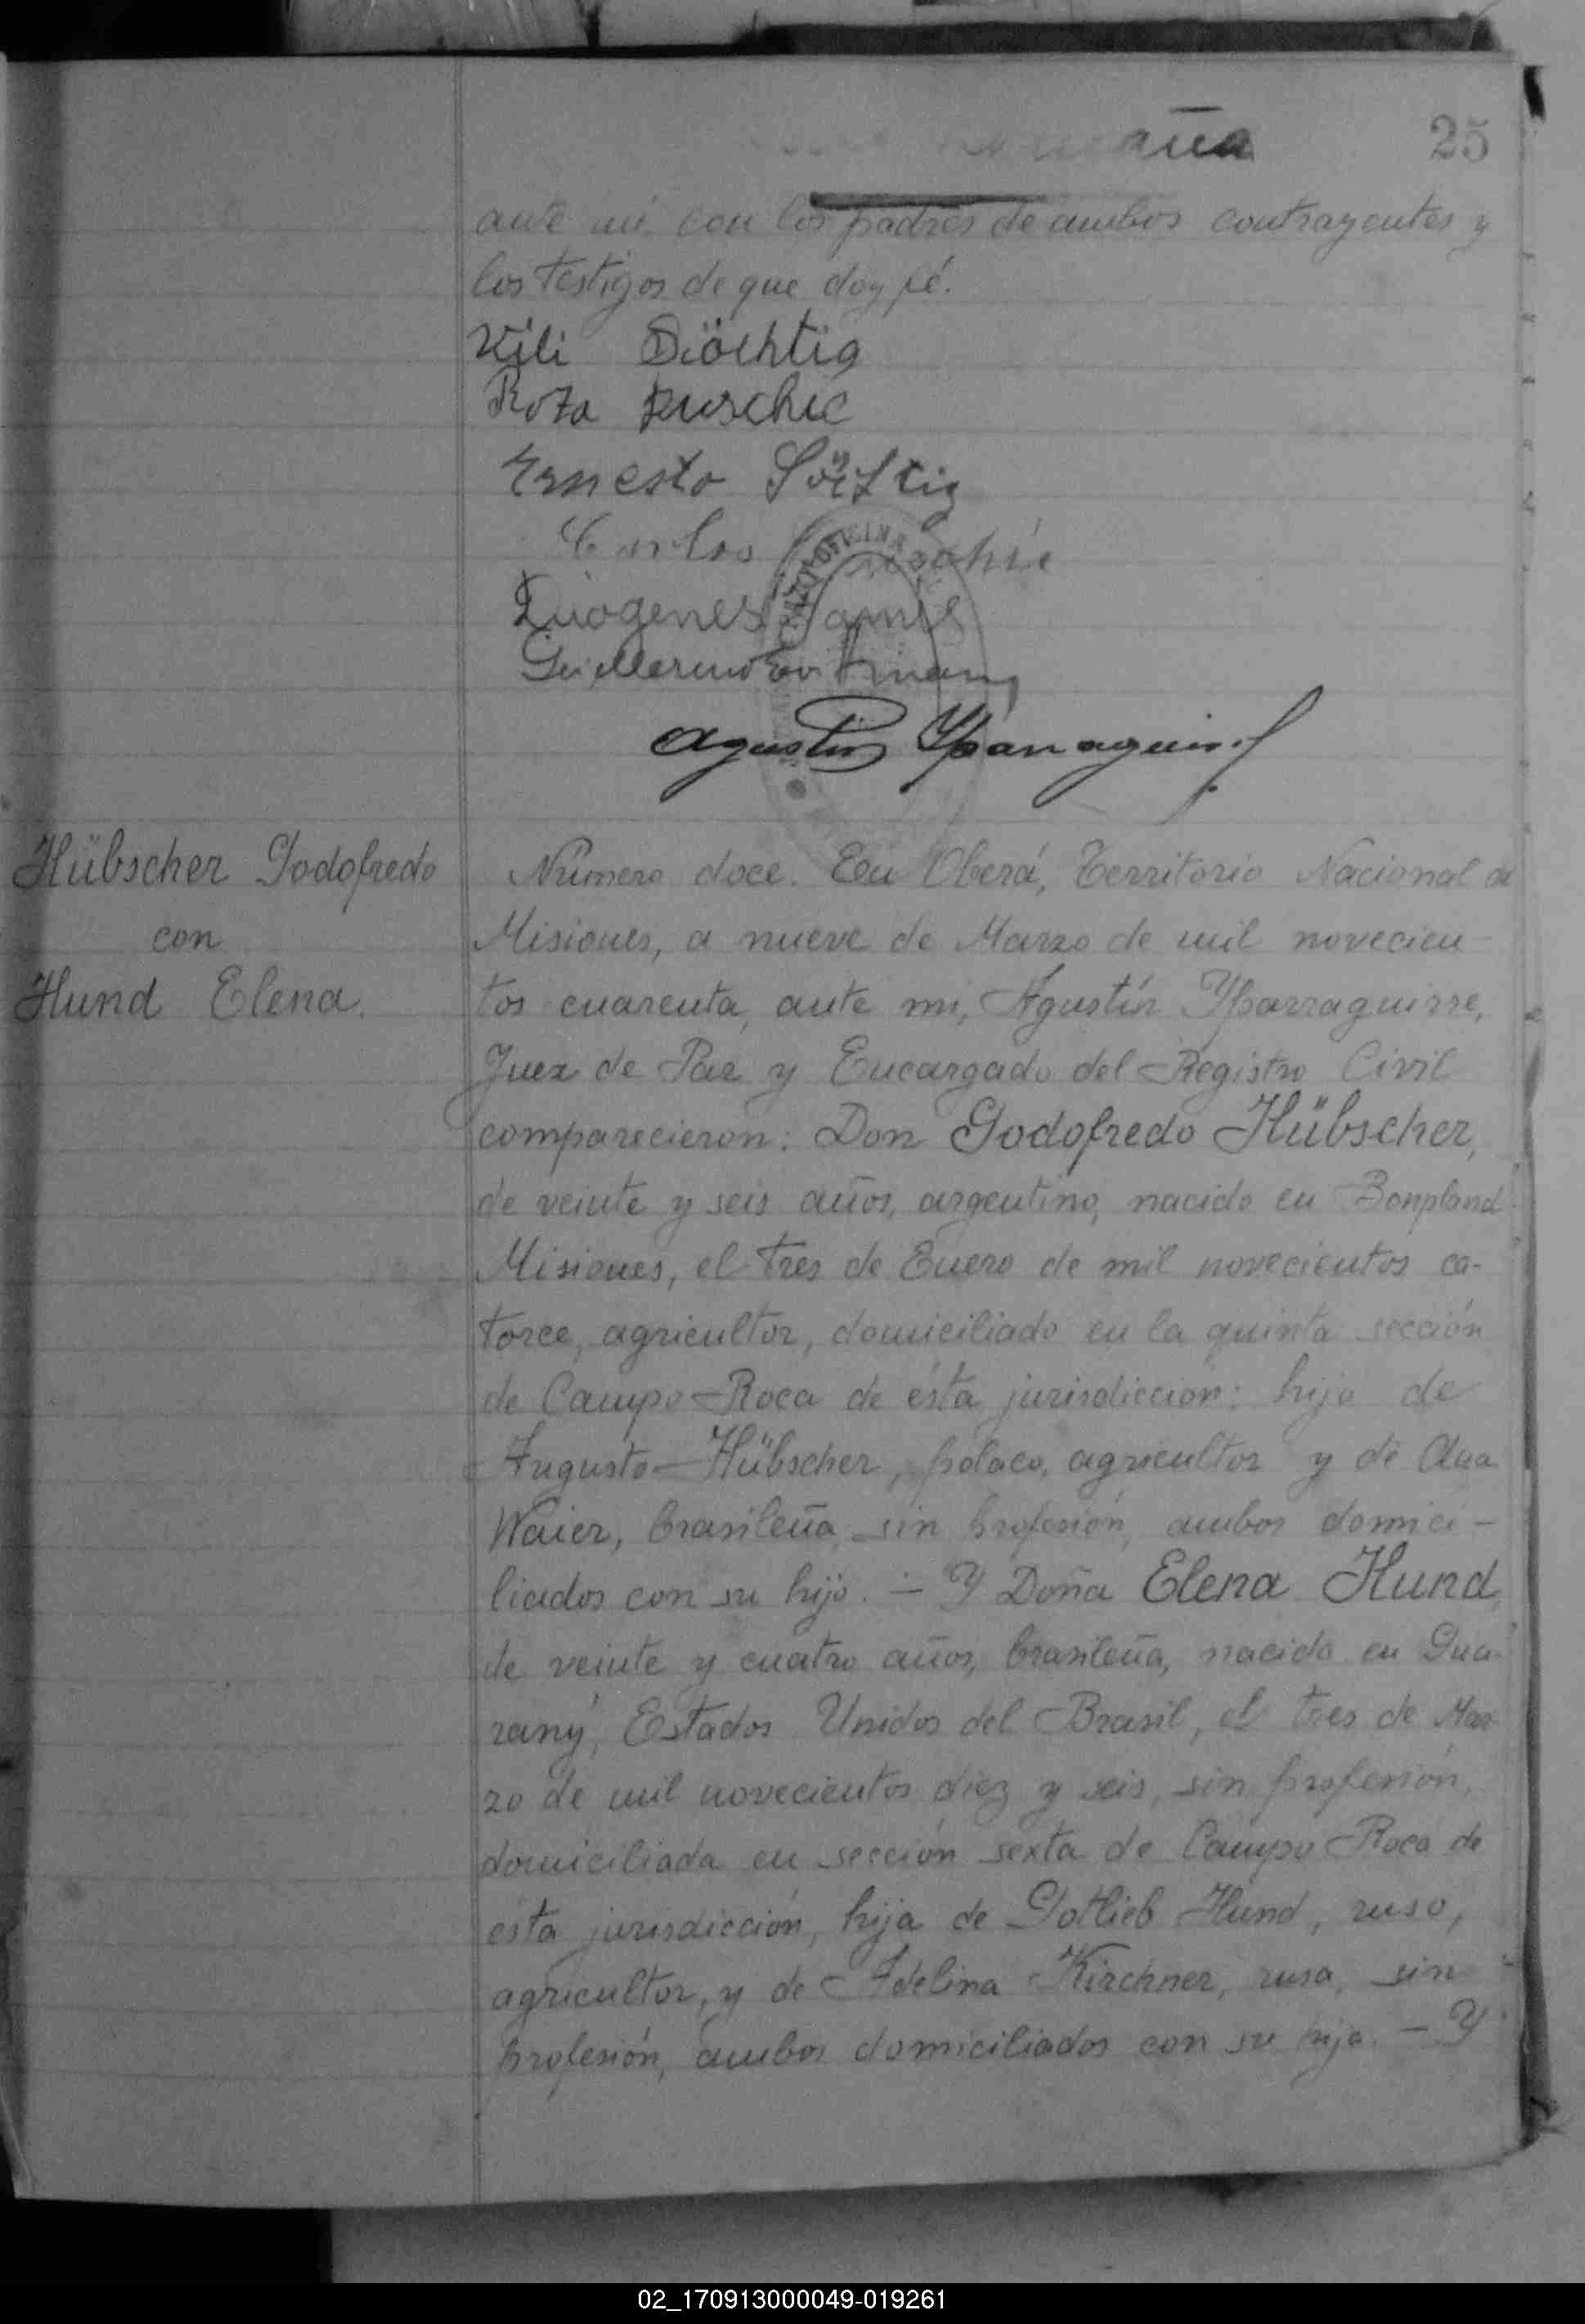 25
ante mi con los padres de ambos contrayentes y
los testigos de que doy fé.
Ernesto
Carlos
Diogenes
Guillermo
Agustin Yparraguirre
Hübscher Godofredo
con
Hund Elena.
Número doce. En Oberá, Territorio Nacional de
Misiones, a nueve de Marzo de mil novecien-
tos cuarenta, ante mi, Agustín Yparraguirre,
Juez de Paz y Encargado del Registro Civil
comparecieron: Don Godofredo Hübscher,
de veinte y seis años, argentino, nacido en Bonpland
Misiones, el tres de Enero de mil novecientos ca-
torce, agricultor, domiciliado en la quinta sección
de Campo Roca de ésta jurisdicción: hijo de
Augusto Hübscher, polaco, agricultor y de Ana
Waier, brasileña sin profesión, ambos domici-
liados con su hijo. — Y Doña Elena Hund,
de veinte y cuatro años, brasileña, nacida en Gua-
rany, Estados Unidos del Brasil, el tres de Mar-
zo de mil novecientos diez y seis, sin profesión,
domiciliada en sección sexta de Campo Roca de
ésta jurisdicción, hija de Gotlieb Hund, ruso,
agricultor, y de Adelina Kirchner, rusa, sin
profesión, ambos domiciliados con su hija. — Y
02_170913000049-019261